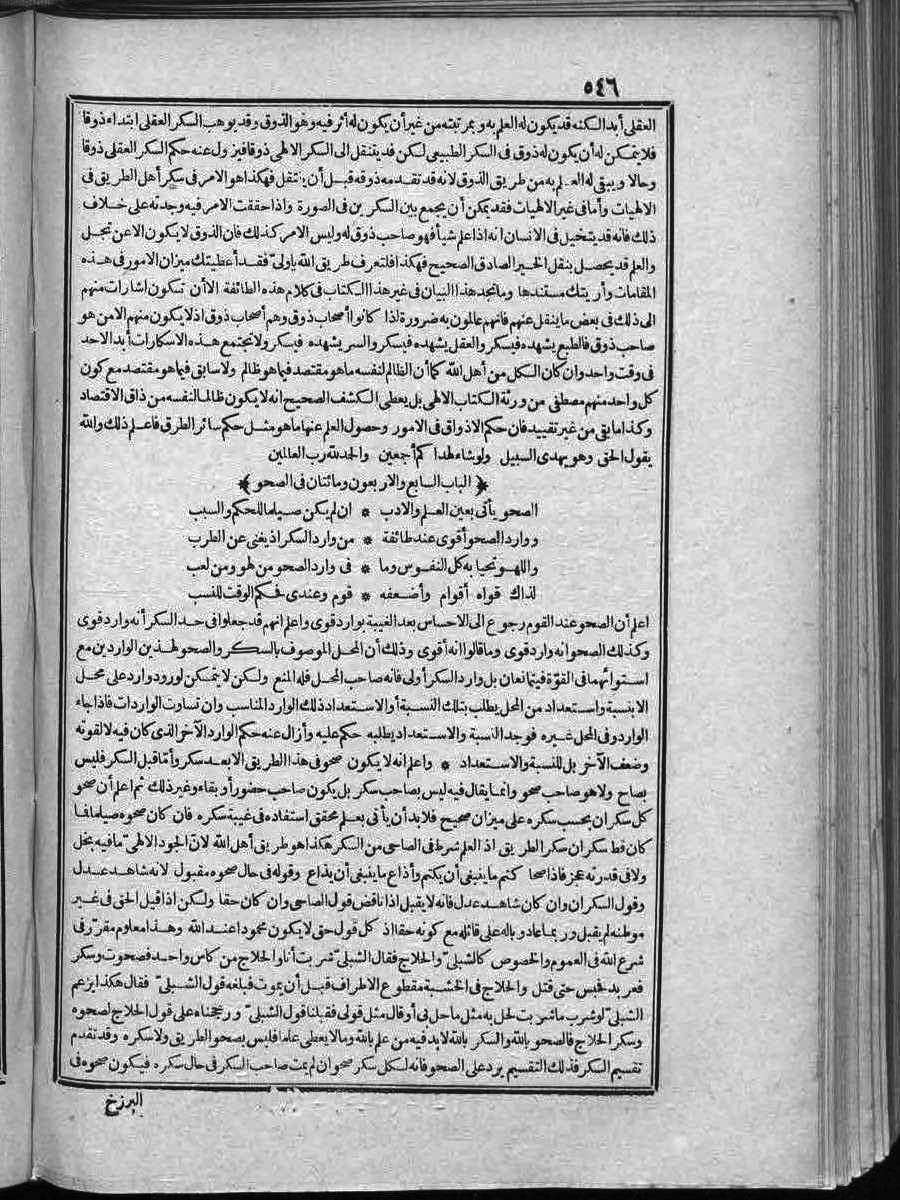 ٥٤٦
العقلى أبدا لكنه قد يكون له العلم به وبمرتبته من غير أن يكون له أثر فيه وهو الذوق وقد يوهب السكر العقلى ابتداء ذوقا
فلا يتمكن له أن يكون له ذوق فى السكر الطبيعى لكن قد ينتقل الى السكر الالهى ذوقا فيزول عنه حكم السكر العقلى ذوقا
وحالا ويبقى له العلم به من طريق الذوق لانه قد تقدمه ذوقه قبل أن ينتقل فهكذا هو الامر فى سكر أهل الطريق فى
الالهيات وأما فى غير الالهيات فقد يمكن أن يجمع بين السكرين فى الصورة واذا حققت الامر فيه وجدته على خلاف
ذلك فانه قد يتخيل فى الانسان انه اذا علم شيأ فهو صاحب ذوق له وليس الامر كذلك فان الذوق لا يكون الا عن تجل
والعلم قد يحصل بنقل الخبر الصادق الصحيح فهكذا فلتعرف طريق الله ياولىّ فقد أعطيتك ميزان الامور فى هذه
المقامات وأريتك مستندها وما تجد هذا البيان فى غير هذا الكتاب فى كلام هذه الطائفة الا أن تكون اشارات منهم
الى ذلك فى بعض ما ينقل عنهم فانهم عالمون به ضرورة اذا كانوا أصحاب ذوق وهم أصحاب ذوق اذ لا يكون منهم الا من هو
صاحب ذوق فالطبع يشهده فيسكر والعقل يشهده فيسكر والسر يشهده فيسكر ولا تجتمع هذه الاسكارات أبدا لاحد
فى وقت واحد وان كان الكل من أهل الله كما أن الظالم لنفسه ما هو مقتصد فيما هو ظالم ولا سابق فيما هو مقتصد مع كون
كل واحد منهم مصطفى من ورثة الكتاب الالهى بل يعطى الكشف الصحيح انه لا يكون ظالما لنفسه من ذاق الاقتصاد
وكذا ما بقى من غير تقييد فان حكم الاذواق فى الامور وحصول العلم عنها ما هو مثل حكم سائر الطرق فاعلم ذلك والله
يقول الحق وهو يهدى السبيل ولو شاء لهداكم أجعين والحمد لله رب العالمين
﴿ الباب السابع والاربعون ومائتان فى الصحو ﴾
الصحو يأتى بعين العلم والادب * ان لم يكن صيلما للحكم والسبب
ووارد الصحو أقوى عند طائفة * من وارد السكر اذ يغنى عن الطرب
واللهو تحيا به كل النفوس وما * فى وارد الصحو من لهو ومن لعب
لذاك قواه أقوام وأضعفه * قوم وعندى فحكم الوقت للنسب
اعلم أن الصحو عند القوم رجوع الى الاحساس بعد الغيبة بوارد قوى واعلم انهم قد جعلوا فى حد السكر أنه وارد قوى
وكذلك الصحو انه وارد قوى وما قالوا انه أقوى وذلك أن المحل الموصوف بالسكر والصحو لهذين الواردين مع
استوائهما فى القوّة فيتمانعان بل وارد السكر أولى فانه صاحب المحل فله المنع ولكن لا يتمكن لورود وارد على محل
الا بنسبة واستعداد من المحل يطلب بتلك النسبة أو الاستعداد ذلك الوارد المناسب وان تساوت الواردات فاذا جاء
الوارد وفى المحل غيره فوجد النسبة والاستعداد يطلبه حكم عليه وأزال عنه حكم الوارد الآخر الذى كان فيه لا لقوته
وضعف الآخر بل للنسبة والاستعداد * واعلم انه لا يكون صحو فى هذا الطريق الا بعد سكر وأما قبل السكر فليس
بصاح ولا هو صاحب صحو وانما يقال فيه ليس بصاحب سكر بل يكون صاحب حضور أو بقاء وغير ذلك ثم اعلم أن صحو
كل سكران بحسب سكره على ميزان صحيح فلا بد أن يأتى بعلم محقق استفاده فى غيبة سكره فان كان صحوه صيلما فما
كان قط سكران سكر الطريق اذ العلم شرط فى الصاحى من السكر هكذا هو طريق أهل الله لانّ الجود الالهىّ ما فيه بخل
ولا فى قدرته عجز فاذا صحا كتم ما ينبغى أن يكتم وأذاع ما ينبغى أن يذاع وقوله فى حال صحوه مقبول لانه شاهد عدل
وقول السكران وان كان شاهد عدل فانه لا يقبل اذا ناقض قول الصاحى وان كان حقا ولكن اذا قيل الحق فى غير
موطنه لم يقبل وربما عاد وباله على قائله مع كونه حقا اذ كل قول حق لا يكون محمودا عند الله وهذا معلوم مقرّر فى
شرع الله فى العموم والخصوص كالشبلىّ والحلاج فقال الشبلىّ شربت أنا والحلاج من كاس واحد فصحوت وسكر
فعربد فحبس حتى قتل والحلاج فى الخشبة مقطوع الاطراف قبل أن يموت فبلغه قول الشبلىّ فقال هكذا يزعم
الشبلىّ لو شرب ما شربت لحل به مثل ما حل بى أو قال مثل قولى فقبلنا قول الشبلىّ ورجحناه على قول الحلاج لصحوه
وسكر الحلاج فالصحو بالله والسكر بالله لا بد فيه من علم بالله وما لا يعطى علما فليس بصحو الطريق ولا سكره وقد تقدم
تقسيم السكر فذلك التقسيم يرد على الصحو فانه لكل سكر صحو ان لم يمت صاحب السكر فى حال سكره فيكون صحوه فى
البرزخ